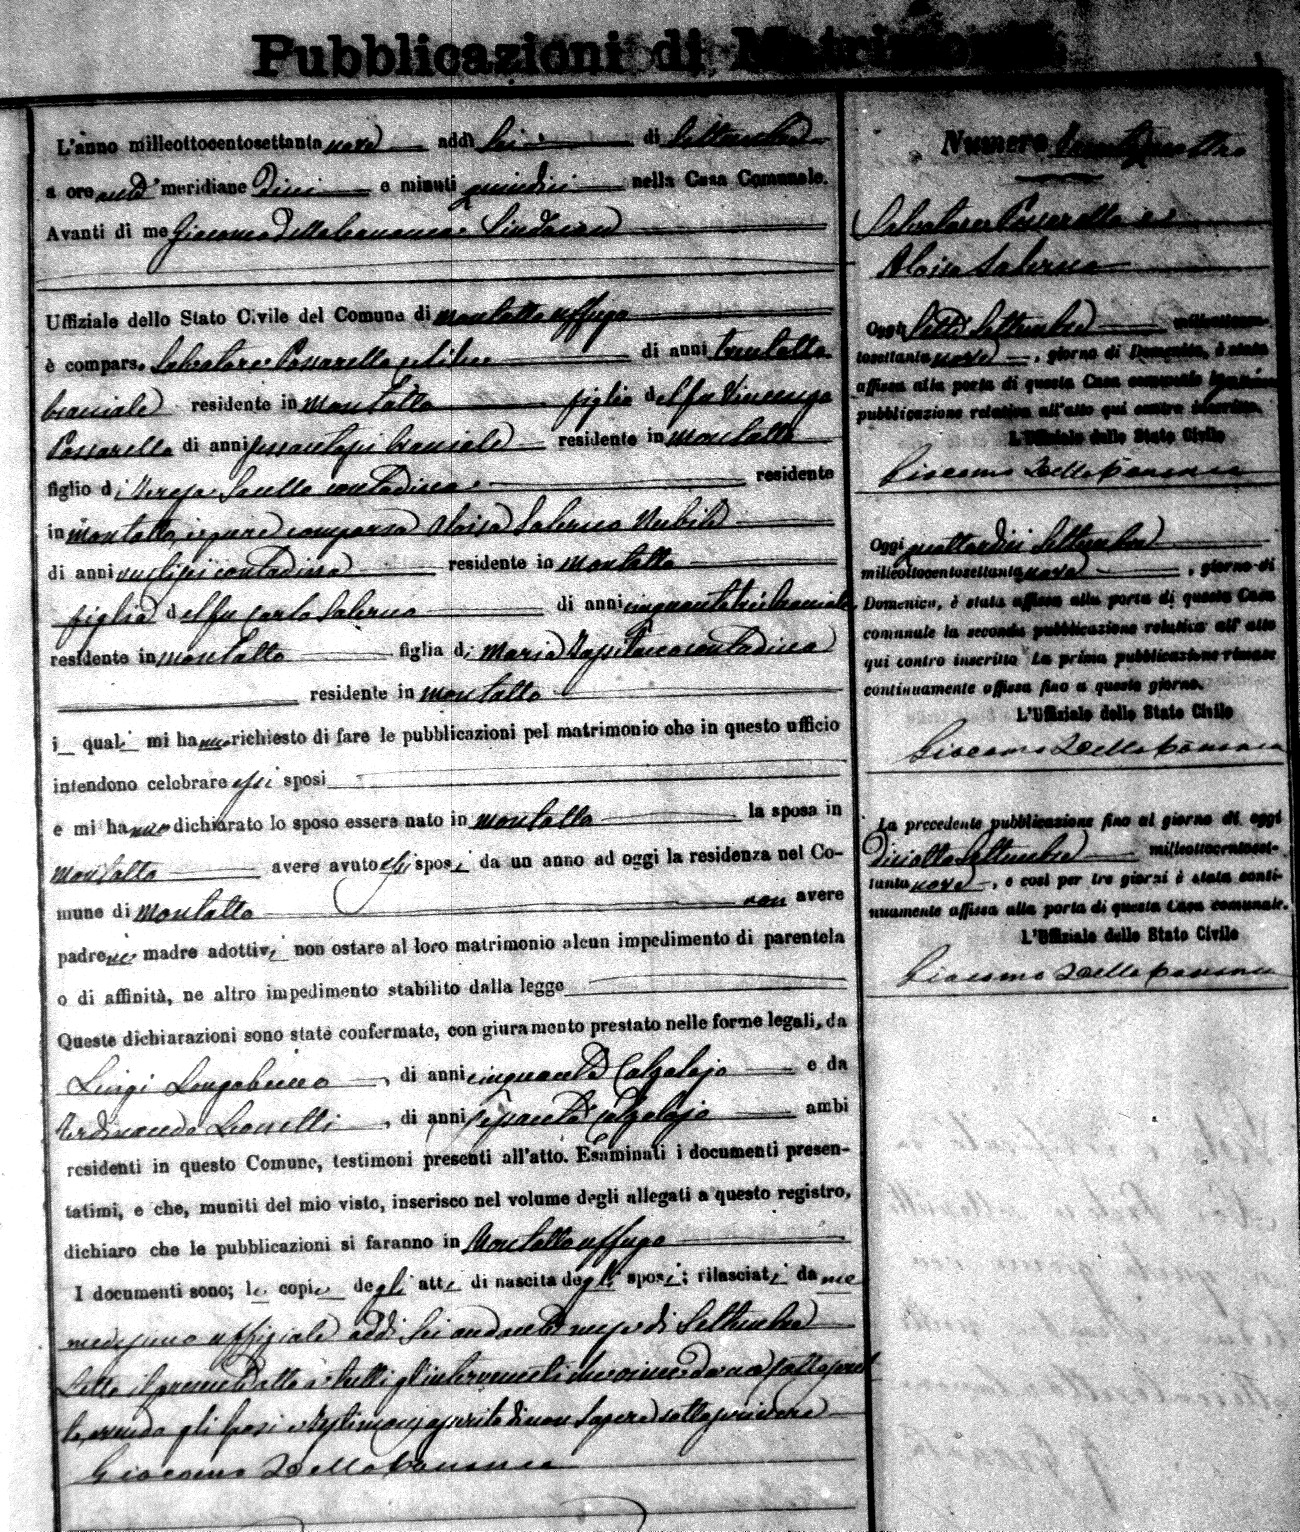 Pubblicazioni di Matrimonio
L'anno milleottocentosettanta nove addì sei di Settembre
a ore anti meridiane dieci e minuti quindici nella Casa Comunale.
Avanti di me Giacomo Sindaco
Uffiziale dello Stato Civile del Comune di Montalto Uffugo
è compars. Salvatore Possarella di anni trentotto
bracciale residente in Montalto figlio del fu Vincenzo
Possarella di anni bracciale residente in Montalto
figlio di Teresa contadina residente
in Montalto, e pure comparsa Aloisa Salerno Nubile
di anni contadina residente in Montalto
figlia del fu Carlo Salerno di anni cinquantatre bracciale
residente in Montalto figlia di Maria contadina
residente in Montalto
i quali mi hanno richiesto di fare le pubblicazioni pel matrimonio che in questo ufficio
intendono celebrare essi sposi
e mi hanno dichiarato lo sposo essere nato in Montalto la sposa in
Montalto avere avuto essi sposi da un anno ad oggi la residenza nel Co-
mune di Montalto non avere
padre nè madre adottivi non ostare al loro matrimonio alcun impedimento di parentela
o di affinità, ne altro impedimento stabilito dalla legge
Queste dichiarazioni sono state confermate, con giuramento prestato nelle forme legali, da
Luigi Longobucco, di anni cinquanta Calzolajo e da
Ferdinando Leonetti, di anni sessanta Calzolajo ambi
residenti in questo Comune, testimoni presenti all'atto. Esaminati i documenti presen-
tatimi, e che, muniti del mio visto, inserisco nel volume degli allegati a questo registro,
dichiaro che le pubblicazioni si faranno in Montalto Uffugo
I documenti sono; le copie degli atti di nascita degli sposi; rilasciati da me
medesimo uffiziale addì sei andante mese di Settembre
Letto il presente atto a tutti gl'intervenuti
gli sposi e testimonj di non sapere sottoscrivere
Giacomo
Numero ventiquattro
Salvatore Possarella e
Aloisa Salerno
Oggi sette Settembre milleottocen-
tosettanta nove, giorno di Domenica, è stata
affissa alla porta di questa Casa comunale la prima
pubblicazione relativa all'atto qui contro inscritto.
L'Uffiziale dello Stato Civile
Giacomo
Oggi quattordici Settembre
milleottocentosettanta nove, giorno di
Domenica, è stata affissa alla porta di questa Casa
comunale la seconda pubblicazione relativa all'atto
qui contro inscritto La prima pubblicazione rimase
continuamente affissa fino a questo giorno.
L'Uffiziale dello Stato Civile
Giacomo
La precedente pubblicazione fino al giorno di oggi
diciotto Settembre milleottocentoset-
tanta nove, e così per tre giorni è stata conti-
nuamente affissa alla porta di questa Casa comunale.
L'Uffiziale dello Stato Civile
Giacomo